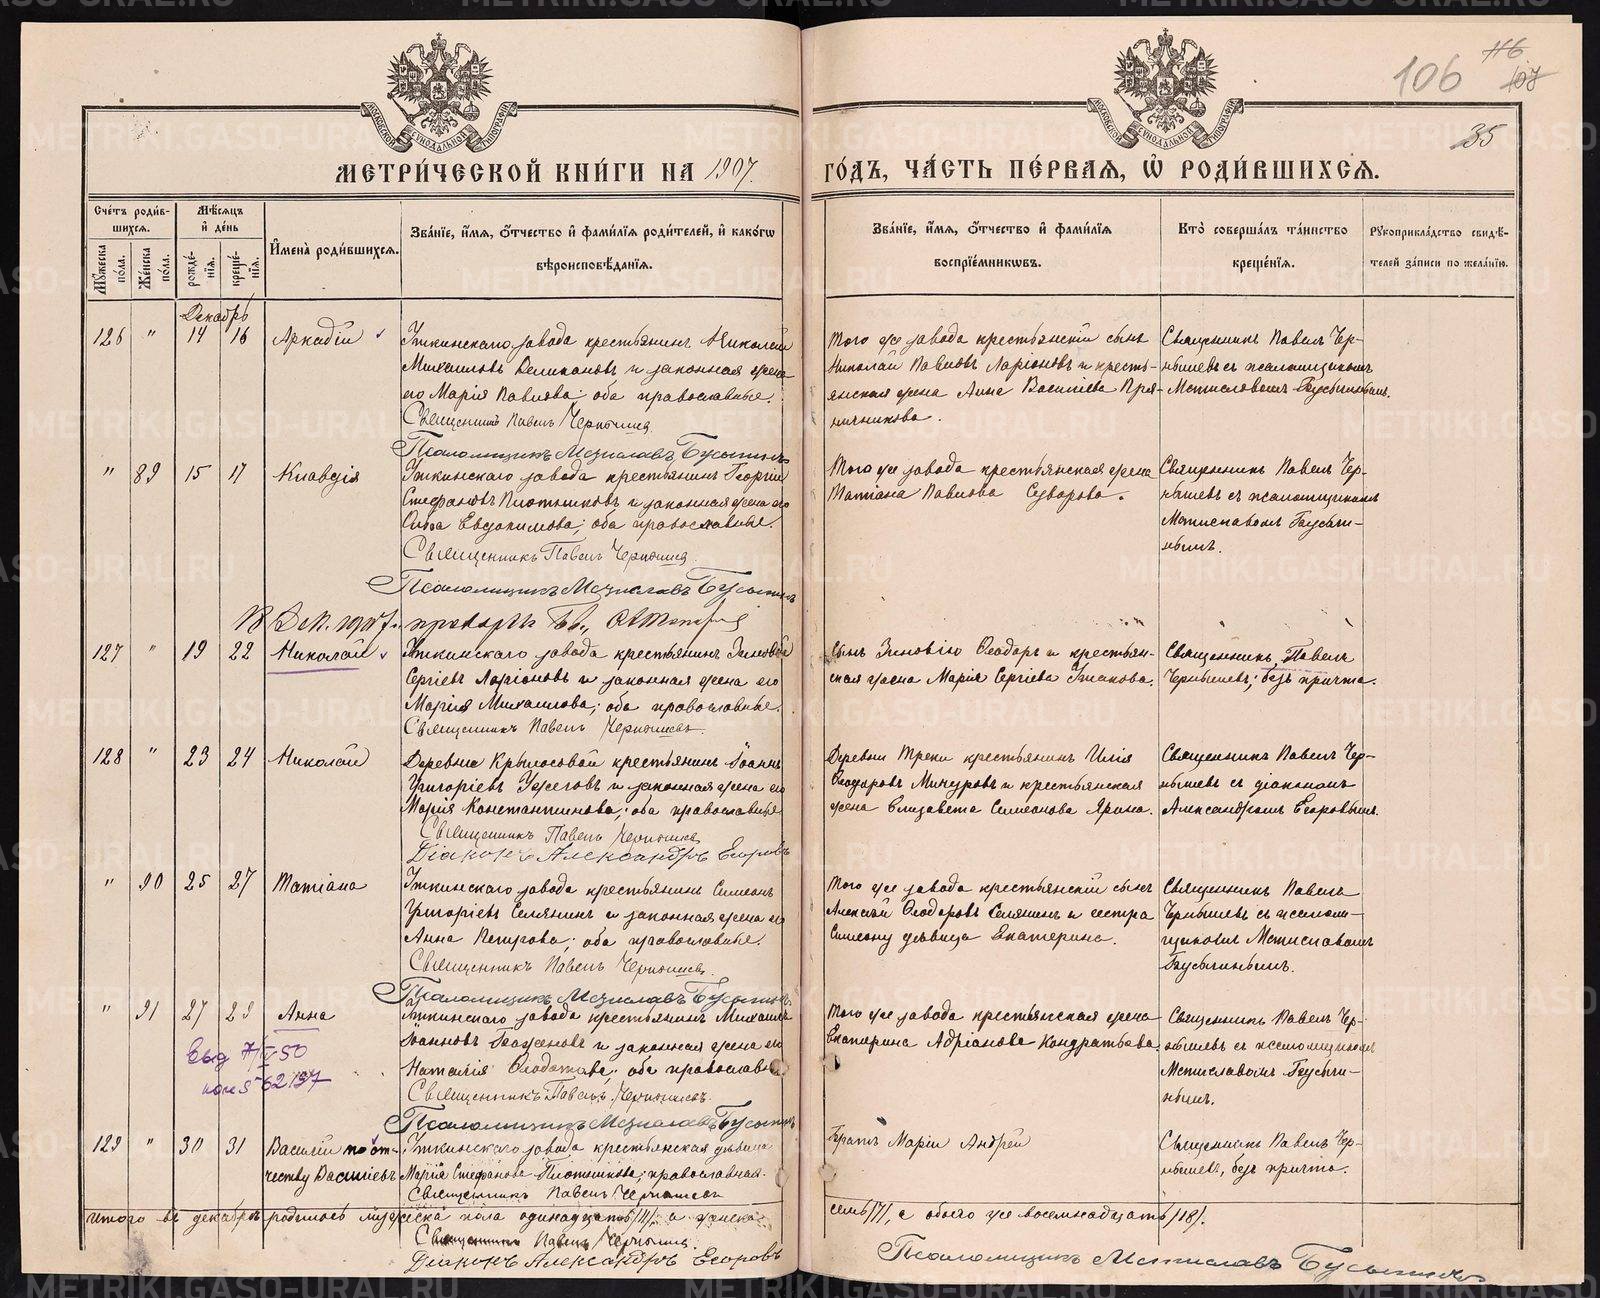 106
116
107
35
МОСКОВСКОЙ СѴНОДАЛЬНОЙ ТИПОГРАФІИ
МОСКОВСКОЙ СѴНОДАЛЬНОЙ ТИПОГРАФІИ
МЕТРИ́ЧЕСКОЙ КНИ́ГИ НА 1907 ГО́ДЪ, ЧА́СТЬ ПЕ́РВАЯ, Ѡ РОДИ́ВШИХСЯ.
Сче́тъ роди́вшихся.
Му́жеска по́ла.
Же́нска по́ла.
Мѣ́сяцъ и де́нь
рожде́нїя.
креще́нїя.
И́мена̀ роди́вшихся.
Зва́нїе, и́мя, о́тчество и фами́лїя роди́телей, и како́гѡ вѣроисповѣ́данїя.
Зва́нїе, и́мя, о́тчество и фами́лїя воспрїе́мникѡвъ.
Кто̀ соверша́лъ та́инство креще́нїя.
Рꙋкоприкла́дство свидѣ́телей за́писи по жела́нїю.
Декабрь
126 " 14 16 Аркадій
Уткинскаго завода крестьянинъ Николай
Михаиловъ Великановъ и законная жена
его Марія Павлова; оба православные.
Священникъ Павелъ Чернышевъ
Псаломщикъ Мстиславъ Бусыгинъ
Того же завода крестьянскій сынъ
Николай Павловъ Ларіоновъ и кресть-
янская жена Анна Василіева Пря-
ничникова.
Священникъ Павелъ Чер-
нышевъ съ псаломщикомъ
Мстиславомъ Бусыгинымъ.
" 89 15 17 Клавдія
Уткинскаго завода крестьянинъ Георгій
Стефановъ Плотниковъ и законная жена его
Ольга Евдокимова; оба православные.
Священникъ Павелъ Чернышевъ
Псаломщикъ Мстиславъ Бусыгинъ
Того же завода крестьянская жена
Татіана Павлова Суворова.
Священникъ Павелъ Чер-
нышевъ съ псаломщикомъ
Мстиславомъ Бусыги-
нымъ.
127 " 19 22 Николай
Уткинскаго завода крестьянинъ Зиновій
Сергіевъ Ларіоновъ и законная жена его
Марія Михаилова; оба православные.
Священникъ Павелъ Чернышевъ.
Сынъ Зиновію Ѳеодоръ и крестьян-
ская жена Марія Сергіева Ушакова.
Священникъ Павелъ
Чернышевъ; безъ причта.
128 " 23 24 Николай
Деревни Крылосовой крестьянинъ Іоаннъ
Григоріевъ Ужеговъ и законная жена его
Марія Константинова; оба православные
Священникъ Павелъ Чернышевъ
Діаконъ Александръ Егоровъ
Деревни Треки крестьянинъ Илія
Ѳеодоровъ Мичуровъ и крестьянская
жена Елизавета Симеонова Ярина.
Священникъ Павелъ Чер-
нышевъ съ діакономъ
Александромъ Егоровымъ.
" 90 25 27 Татіана
Уткинскаго завода крестьянинъ Симеонъ
Григоріевъ Селянинъ и законная жена его
Анна Петрова; оба православные.
Священникъ Павелъ Чернышевъ.
Псаломщикъ Мстиславъ Бусыгинъ.
Того же завода крестьянскій сынъ
Алексѣй Ѳеодоровъ Селянинъ и сестра
Симеону дѣвица Екатерина.
Священникъ Павелъ
Чернышевъ съ псалом-
щикомъ Мстиславомъ
Бусыгинымъ.
" 91 27 28 Анна
Уткинскаго завода крестьянинъ Михаилъ
Іоанновъ Баженовъ и законная жена его
Наталія Ѳеодотова; оба православные
Священникъ Павелъ Чернышевъ.
Псаломщикъ Мстиславъ Бусыгинъ
Того же завода крестьянская жена
Екатерина Адріанова Кондратьева.
Священникъ Павелъ Чер-
нышевъ съ псаломщикомъ
Мстиславомъ Бусыги-
нымъ.
129 " 30 31 Василій по от-
честву Василіевъ
Уткинскаго завода крестьянская дѣвица
Марія Стефанова Плотникова; православная.
Священникъ Павелъ Чернышевъ
Братъ Маріи Андрей
Священникъ Павелъ Чер-
нышевъ, безъ причта.
Итого въ декабрѣ родилось мужеска пола одинадцать /11/, а женска семь /7/, а обоего же восемнадцать /18/.
Священникъ Павелъ Чернышевъ.
Діаконъ Александръ Егоровъ
Псаломщикъ Мстиславъ Бусыгинъ
METRIKI.GASO-URAL.RU